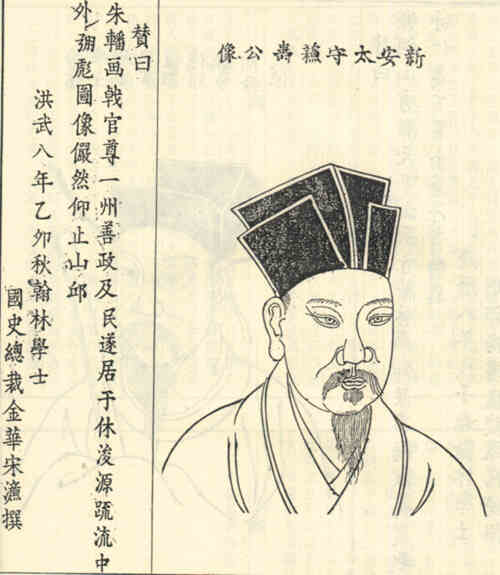 新安太守蘓公像
賛曰
朱轓画戟官尊一州善政及民遂居于休浚源䟽流中
外弸彪圖像儼然仰止山邱
洪武八年乙夘秋翰林學士
國史總裁金華宋濂撰